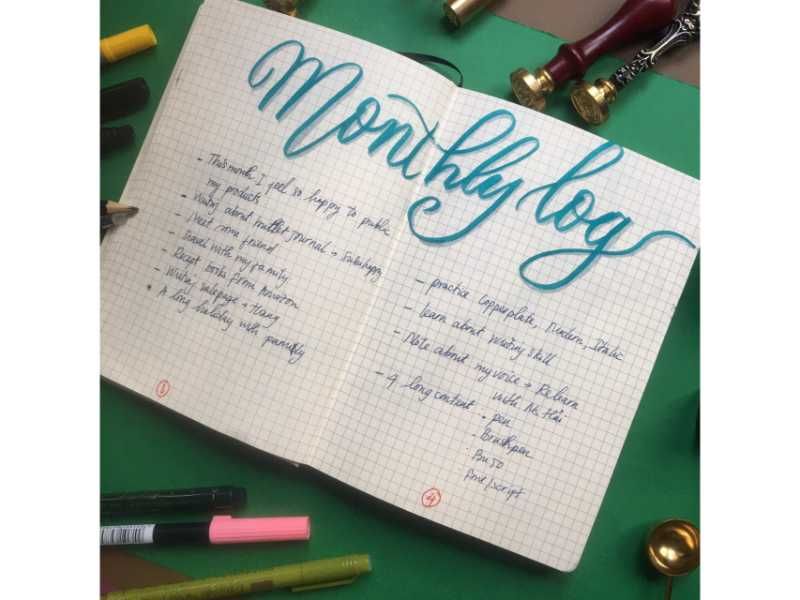 Monthly log
- This month I feel so happy to public
my products
- Writing about bullet journal →
- Meet some friend
- Travel with my family
- Recept books from Amazon
- Writing salepage → Hang
• A long holiday with pamily
- practice Copperplate, Modern, Italic
- learn about writing skill
- Note about my voice → Relearn
with Ms Hải
- 4 long content • pen
- Brushpen
• BuJo
/script
4